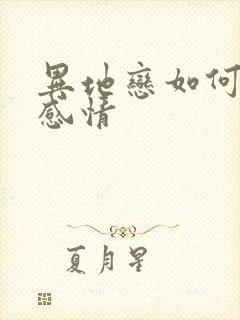 異地戀如何
感情
夏月星